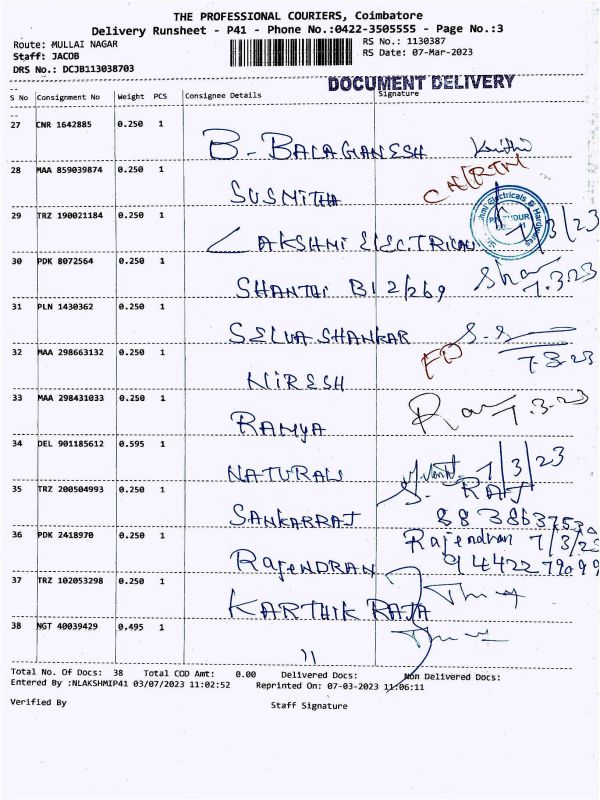 THE PROFESSIONAL COURIERS, Coimbatore
Delivery Runsheet - P41 - Phone No.:0422-3505555 - Page No.:3
Route: MULLAI NAGAR RS No.: 1130387
Staff: JACOB RS Date: 07-Mar-2023
DRS No.: DCJB113038703
DOCUMENT DELIVERY
S No Consignment No Weight PCS Consignee Details Signature
27 CNR 1642885 0.250 1
B-BALAGANESH
28 MAA 859039874 0.250 1
SUSMITHA
29 TRZ 190021184 0.250 1
LAKSHMI ELECTRICAL 7/3/23
30 PDK 8072564 0.250 1
SHANTHI B12/269 7.3.23
31 PLN 1430362 0.250 1
SELVA SHANKAR 7.3.23
32 MAA 298663132 0.250 1
NIRESH
33 MAA 298431033 0.250 1
RAMYA 7.3.23
34 DEL 901185612 0.595 1
NATURALS 7/3/23
35 TRZ 200504993 0.250 1
SANKARRAJ S. RAJ
36 PDK 2418970 0.250 1
RAJENDRAN Rajendran 7/3/23
9442279099
37 TRZ 102053298 0.250 1
KARTHIK RAJA
38 NGT 40039429 0.495 1
11
Total No. Of Docs: 38 Total COD Amt: 0.00 Delivered Docs: Non Delivered Docs:
Entered By :NLAKSHMIP41 03/07/2023 11:02:52 Reprinted On: 07-03-2023 11:06:11
Verified By Staff Signature